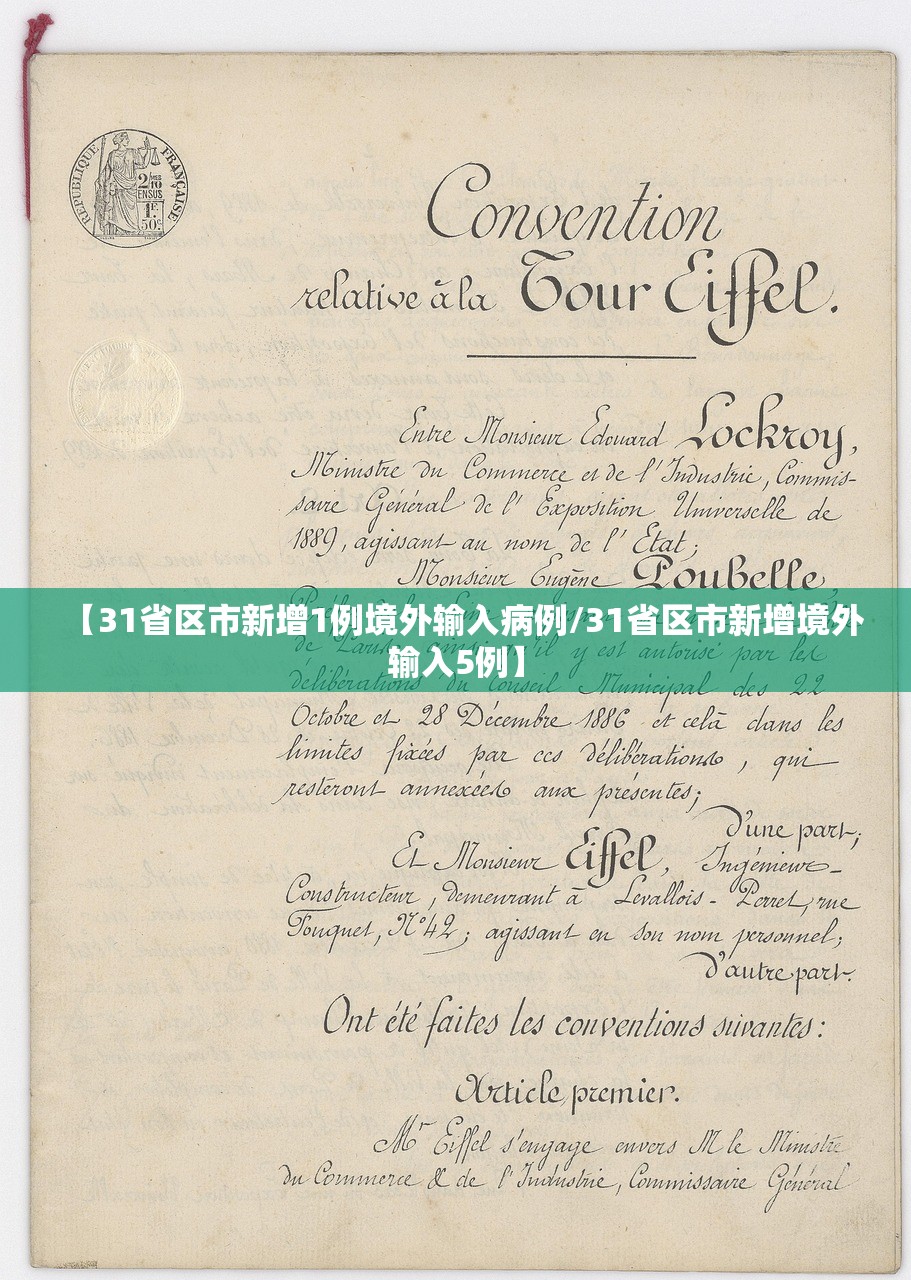 RÉPUBLIQUE FRANÇAISE
2/10
EN SUS
1F.
50c
Convention
relative à la Tour Eiffel.
Entre Monsieur Edouard Lockroy,
Ministre du Commerce et de l'Industrie, Commis-
saire Général de l'Exposition Universelle de
1889, agissant au nom de l'Etat;
Monsieur Eugène Poubelle,
【31省区市新增1例境外输入病例/31省区市新增境外
输入5例】
de Paris, ainsi qu'il y est autorisé par les
délibérations du Conseil Municipal des 22
Octobre et 28 Décembre 1886 et celà dans les
limites fixées par ces délibérations, qui
resteront annexées aux présentes;
D'une part;
Et Monsieur Eiffel, Ingénieur-
Constructeur, demeurant à Levallois-Perret, rue
Fouquet, N°42; agissant en son nom personnel;
D'autre part.
Ont été faites les conventions suivantes:
Article premier.
Mr Eiffel s'engage envers M le Ministre
du Commerce & de l'Industrie, Commissaire Général